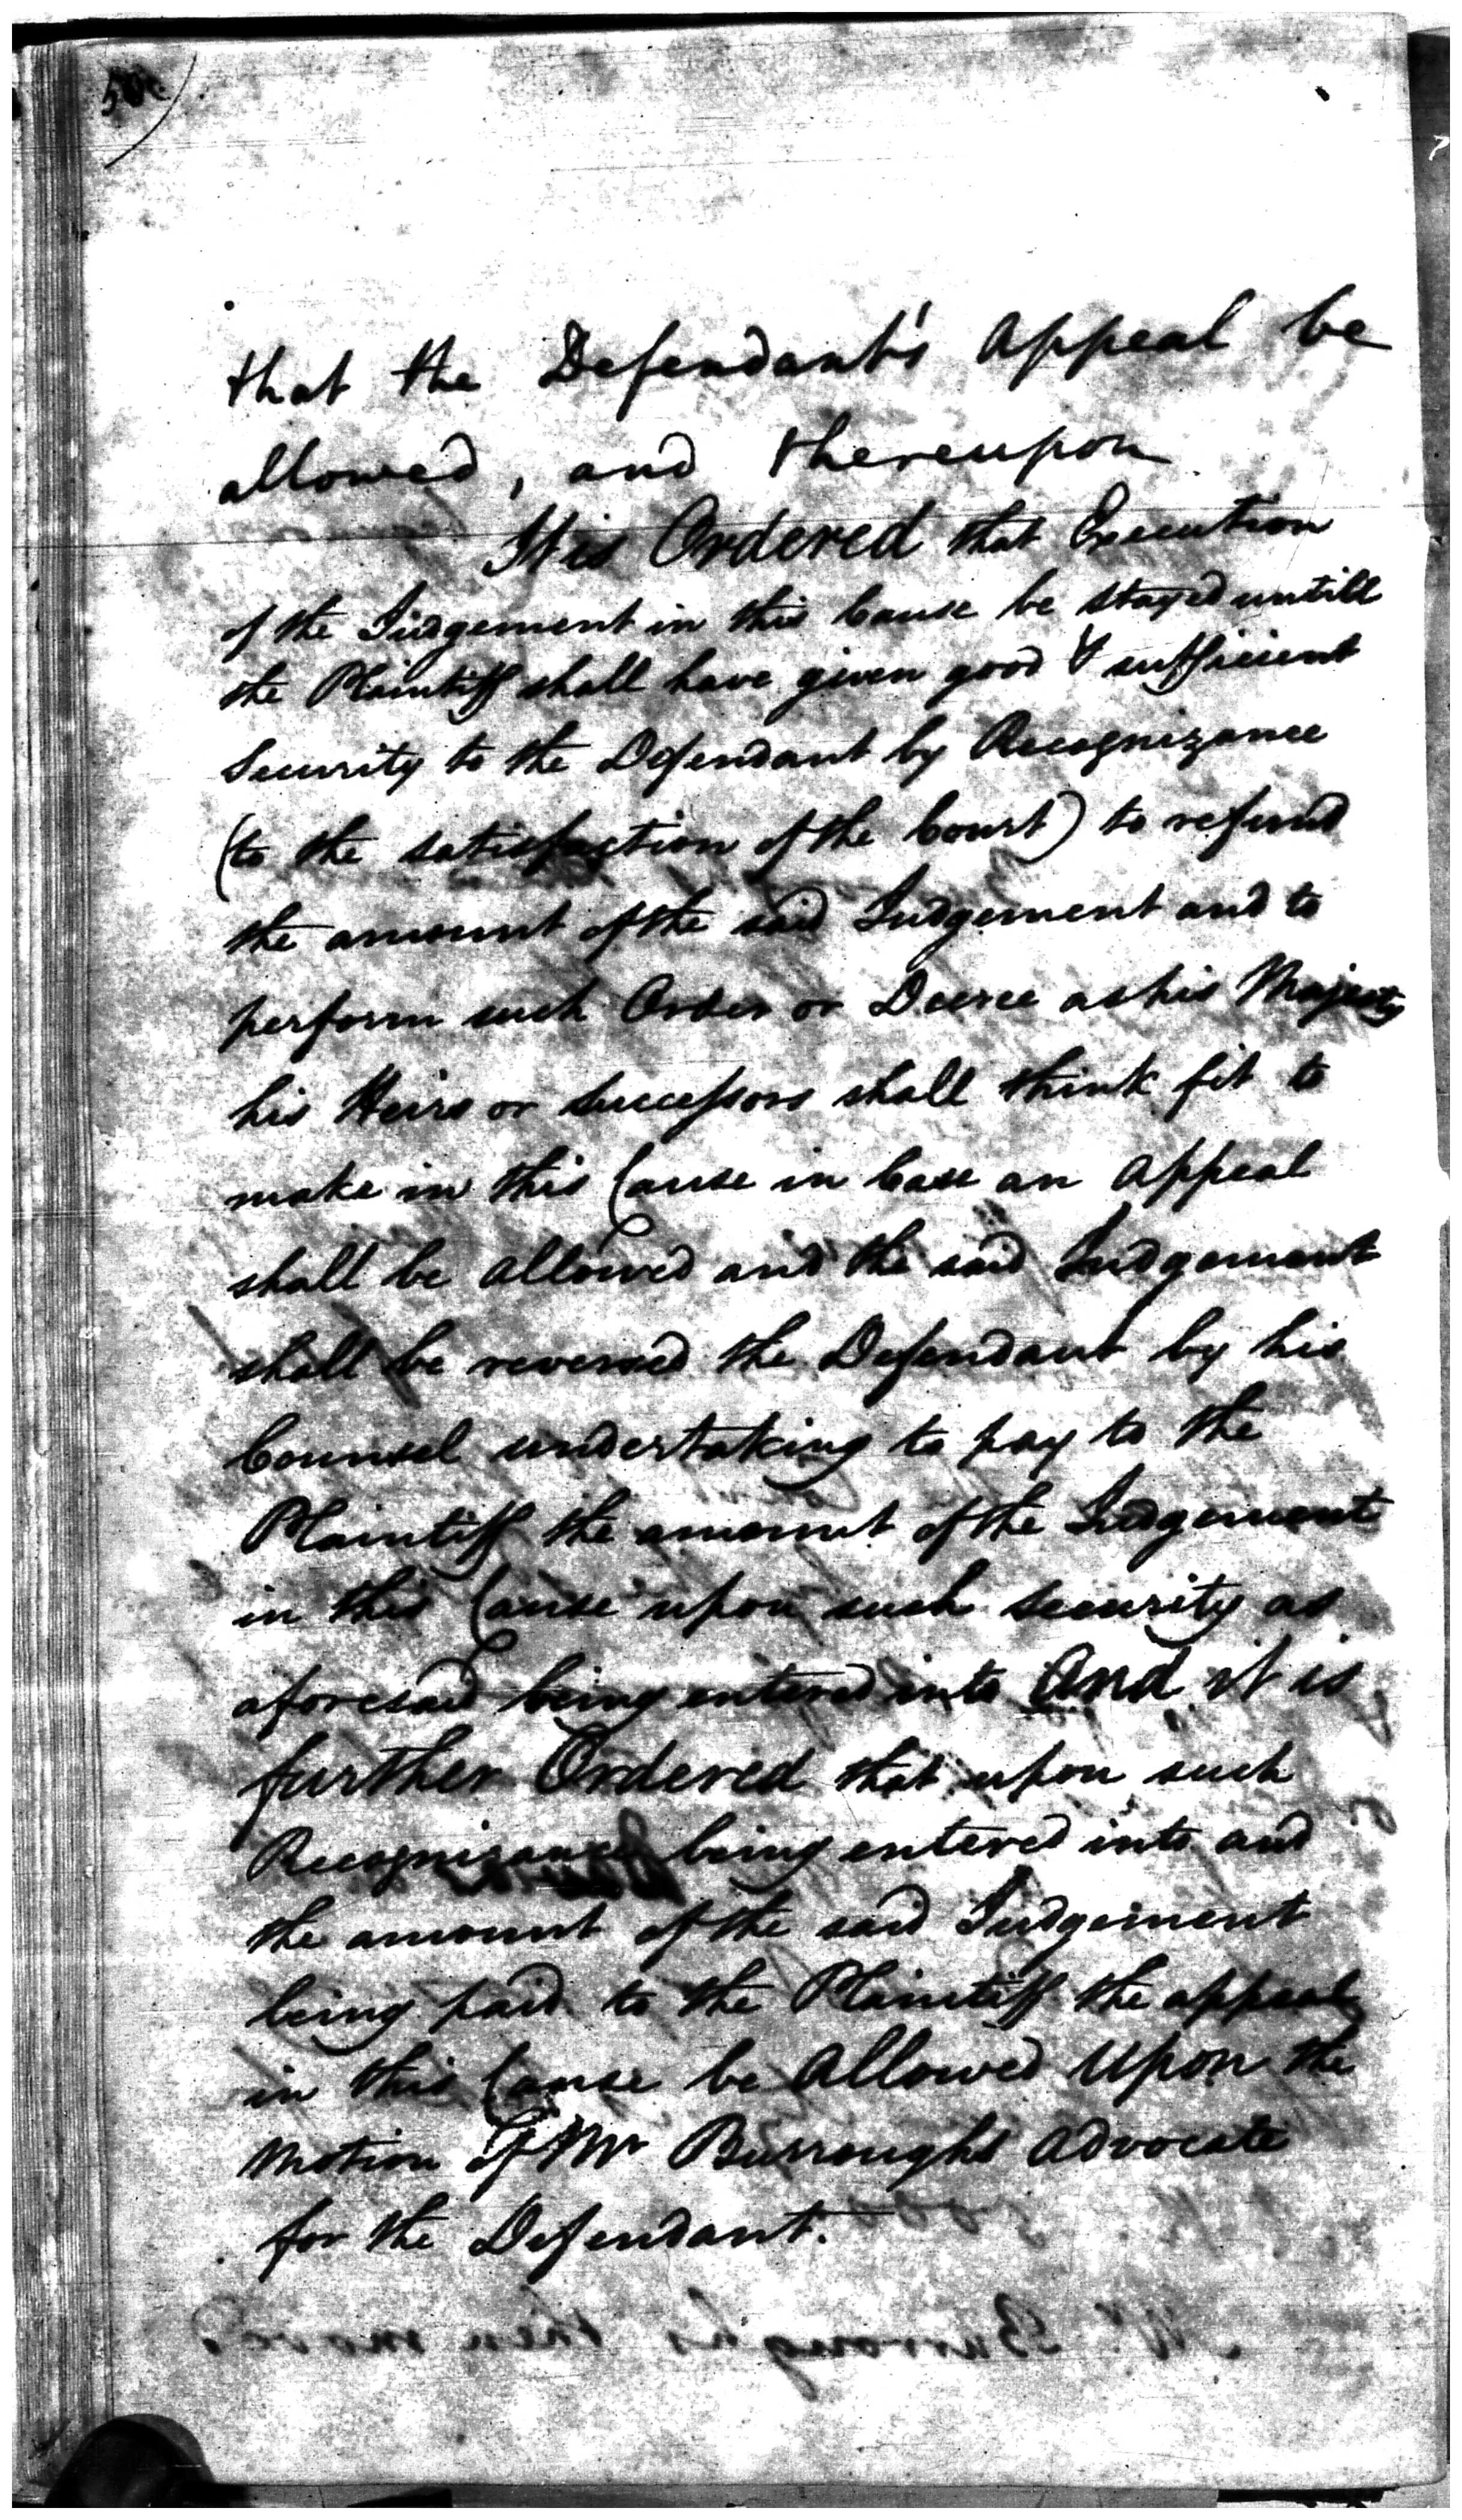 that the Defendant's appeal be
allowed, and thereupon
It is Ordered that Execution
of the Judgement in this Cause be stayed untill
the Plaintiff shall have given good & sufficient
Security to the Defendant by Recognizance
(to the satisfaction of the Court) to refund
the amount of the said Judgement and to
perform such Order or Decree as his Majesty
his Heirs or Successors shall think fit to
make in this Cause in Case an appeal
shall be allowed and the said Judgement
shall be reversed the Defendant by his
Counsel undertaking to pay to the
Plaintiff the amount of the Judgement
in this Cause upon such security as
aforesaid being entered into And it is
further Ordered that upon such
Recognizance being entered into and
the amount of the said Judgement
being paid to the Plaintiff the appeal
in this Cause be allowed Upon the
Motion of Mr Burroughs advocate
for the Defendant.